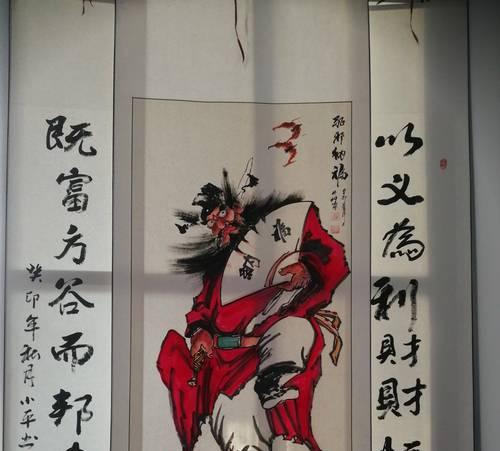 以义為利財財恒
既富方谷而邦
癸卯年秋月小平书
驱邪纳福